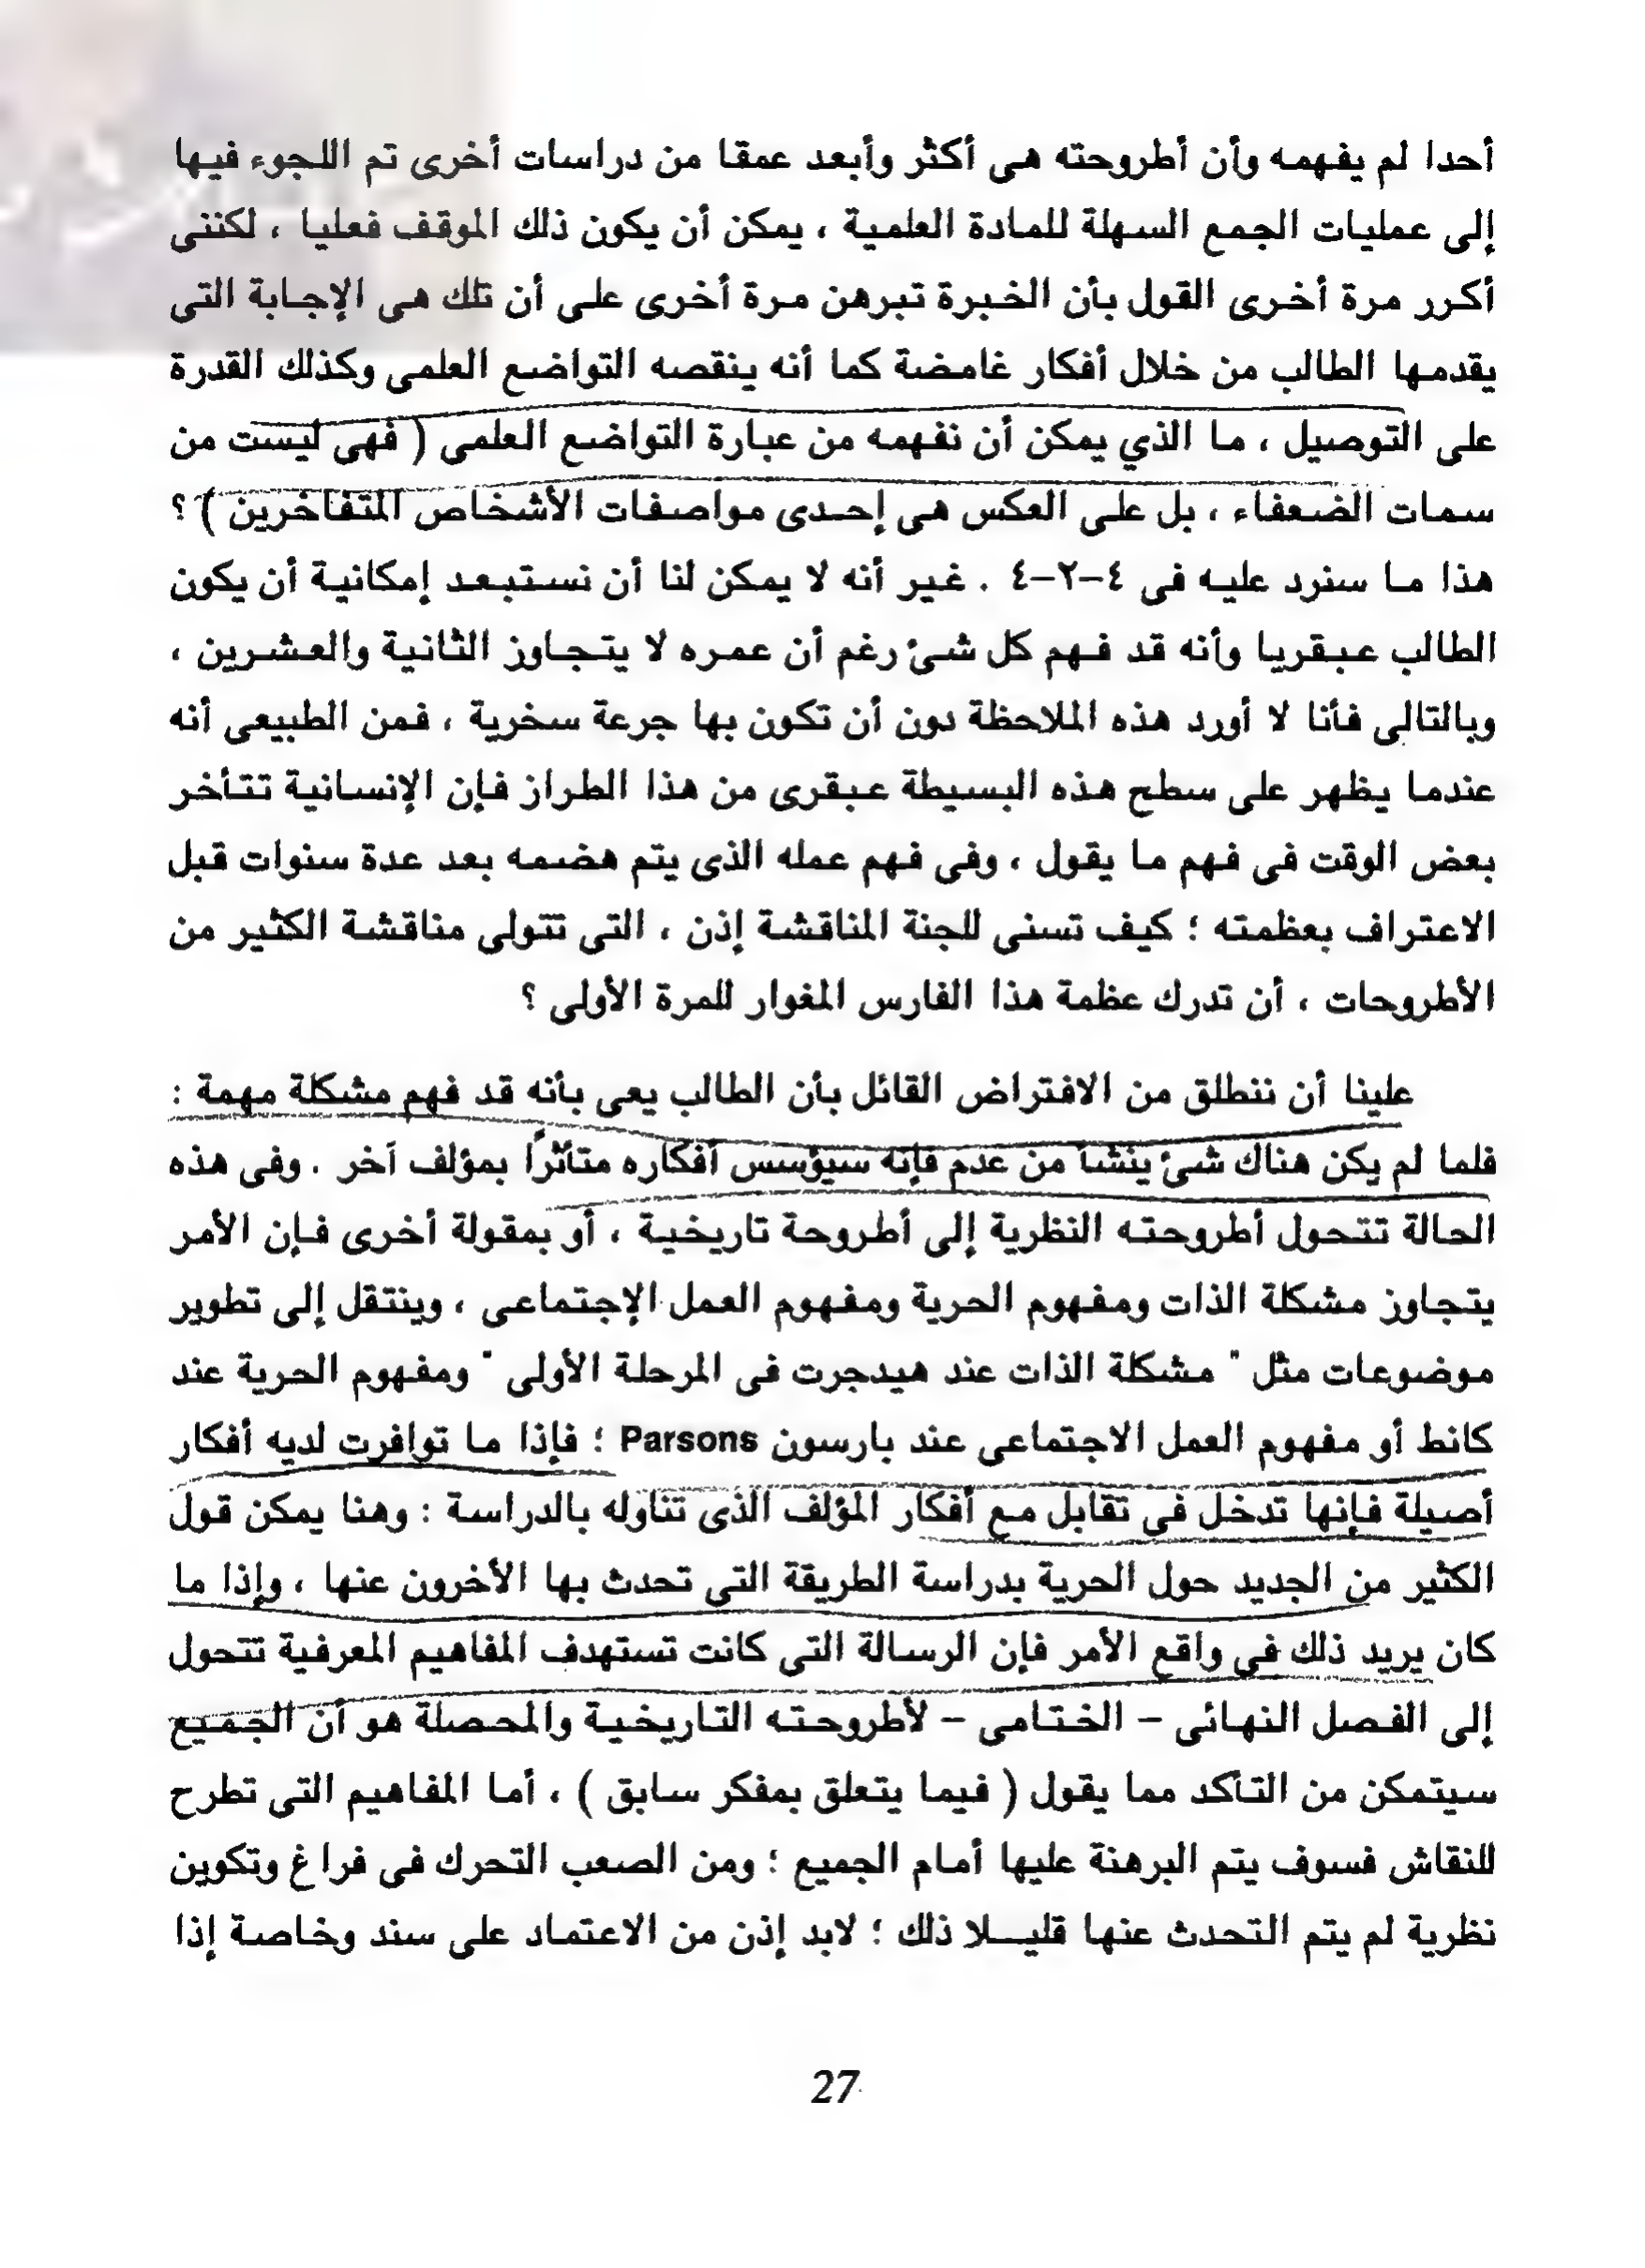 أحدا لم يفهمه وأن أطروحته هى أكثر وأبعد عمقا من دراسات أخرى تم اللجوء فيها
إلى عمليات الجمع السهلة للمادة العلمية ، يمكن أن يكون ذلك الموقف فعليا ، لكننى
أكرر مرة أخرى القول بأن الخبرة تبرهن مرة أخرى على أن تلك هى الإجابة التى
يقدمها الطالب من خلال أفكار غامضة كما أنه ينقصه التواضع العلمى وكذلك القدرة
على التوصيل ، ما الذي يمكن أن نفهمه من عبارة التواضع العلمى ( فهى ليست من
سمات الضعفاء ، بل على العكس هى إحدى مواصفات الأشخاص المتفاخرين ) ؟
هذا ما سنرد عليه فى ٤-٢-٤ . غير أنه لا يمكن لنا أن نستبعد إمكانية أن يكون
الطالب عبقريا وأنه قد فهم كل شئ رغم أن عمره لا يتجاوز الثانية والعشرين ،
وبالتالى فأنا لا أورد هذه الملاحظة دون أن تكون بها جرعة سخرية ، فمن الطبيعى أنه
عندما يظهر على سطح هذه البسيطة عبقرى من هذا الطراز فإن الإنسانية تتأخر
بعض الوقت فى فهم ما يقول ، وفى فهم عمله الذى يتم هضمه بعد عدة سنوات قبل
الاعتراف بعظمته ؛ كيف تسنى للجنة المناقشة إذن ، التى تتولى مناقشة الكثير من
الأطروحات ، أن تدرك عظمة هذا الفارس المغوار للمرة الأولى ؟
علينا أن ننطلق من الافتراض القائل بأن الطالب يعى بأنه قد فهم مشكلة مهمة :
فلما لم يكن هناك شئ ينشأ من عدم فإنه سيؤسس أفكاره متأثراً بمؤلف آخر . وفى هذه
الحالة تتحول أطروحته النظرية إلى أطروحة تاريخية ، أو بمقولة أخرى فإن الأمر
يتجاوز مشكلة الذات ومفهوم الحرية ومفهوم العمل الإجتماعى ، وينتقل إلى تطوير
موضوعات مثل " مشكلة الذات عند هيدجرت فى المرحلة الأولى " ومفهوم الحرية عند
كانط أو مفهوم العمل الاجتماعى عند بارسون Parsons ؛ فإذا ما توافرت لديه أفكار
أصيلة فإنها تدخل فى تقابل مع أفكار المؤلف الذى تناوله بالدراسة : وهنا يمكن قول
الكثير من الجديد حول الحرية بدراسة الطريقة التى تحدث بها الأخرون عنها ، وإذا ما
كان يريد ذلك فى واقع الأمر فإن الرسالة التى كانت تستهدف المفاهيم المعرفية تتحول
إلى الفصل النهائى – الختامى – لأطروحته التاريخية والمحصلة هو أن الجميع
سيتمكن من التأكد مما يقول ( فيما يتعلق بمفكر سابق ) ، أما المفاهيم التى تطرح
للنقاش فسوف يتم البرهنة عليها أمام الجميع ؛ ومن الصعب التحرك فى فراغ وتكوين
نظرية لم يتم التحدث عنها قليلا ذلك ؛ لابد إذن من الاعتماد على سند وخاصة إذا
27